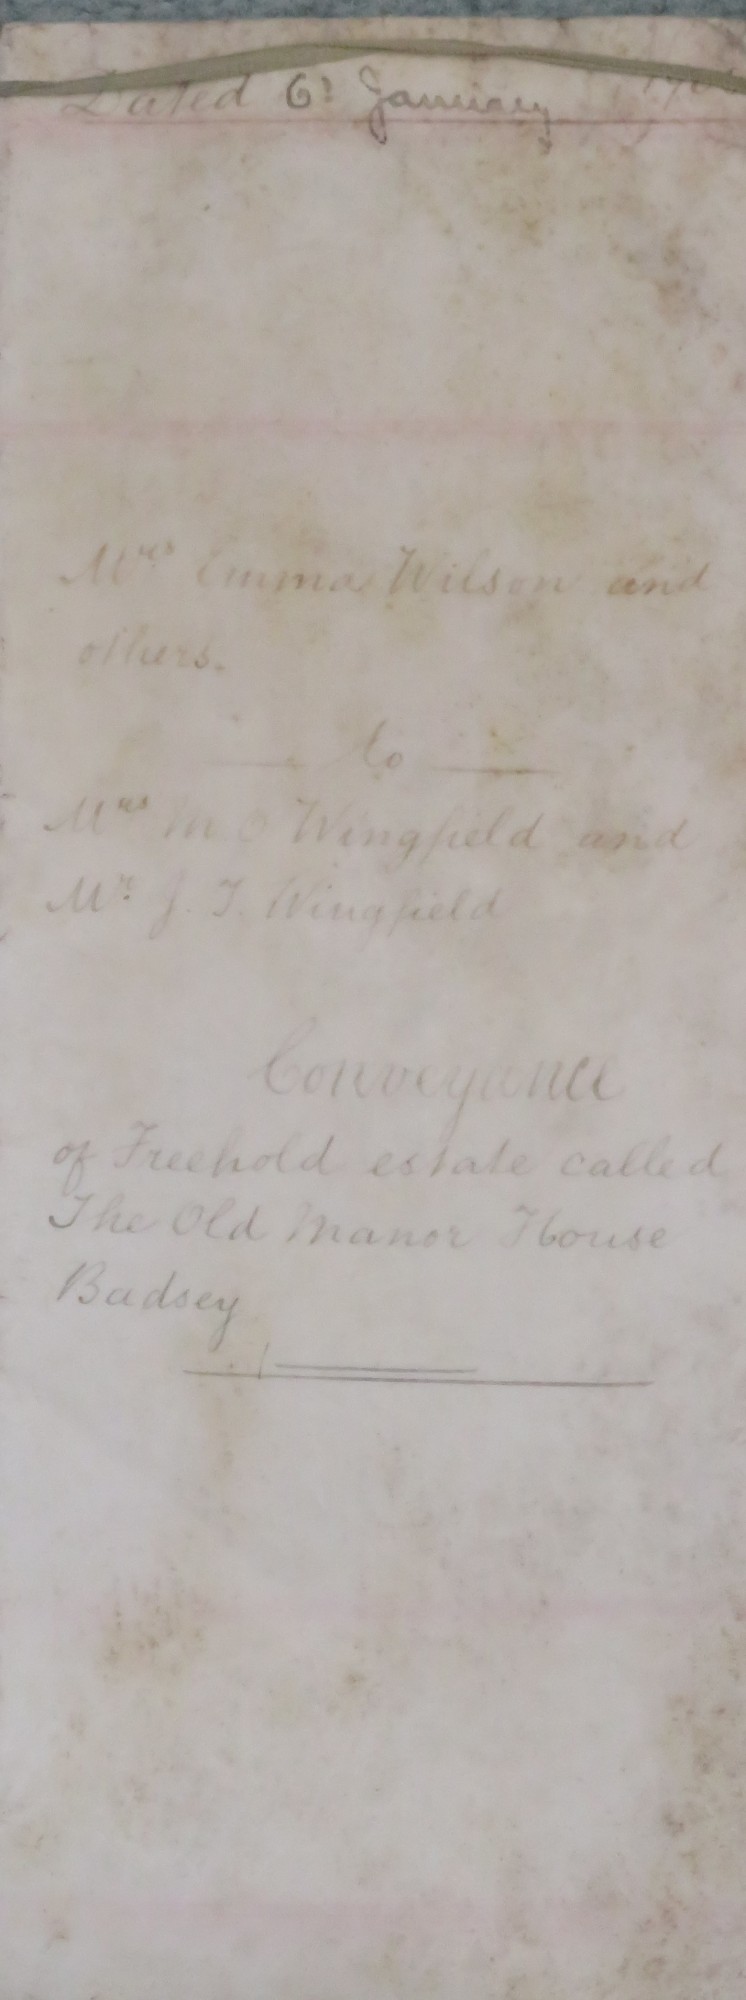 Dated 6th January
Mrs Emma Wilson and
others.
to
Mrs M. C Wingfield and
Mr. J. T. Wingfield
Conveyance
of Freehold estate called
The Old Manor House
Badsey